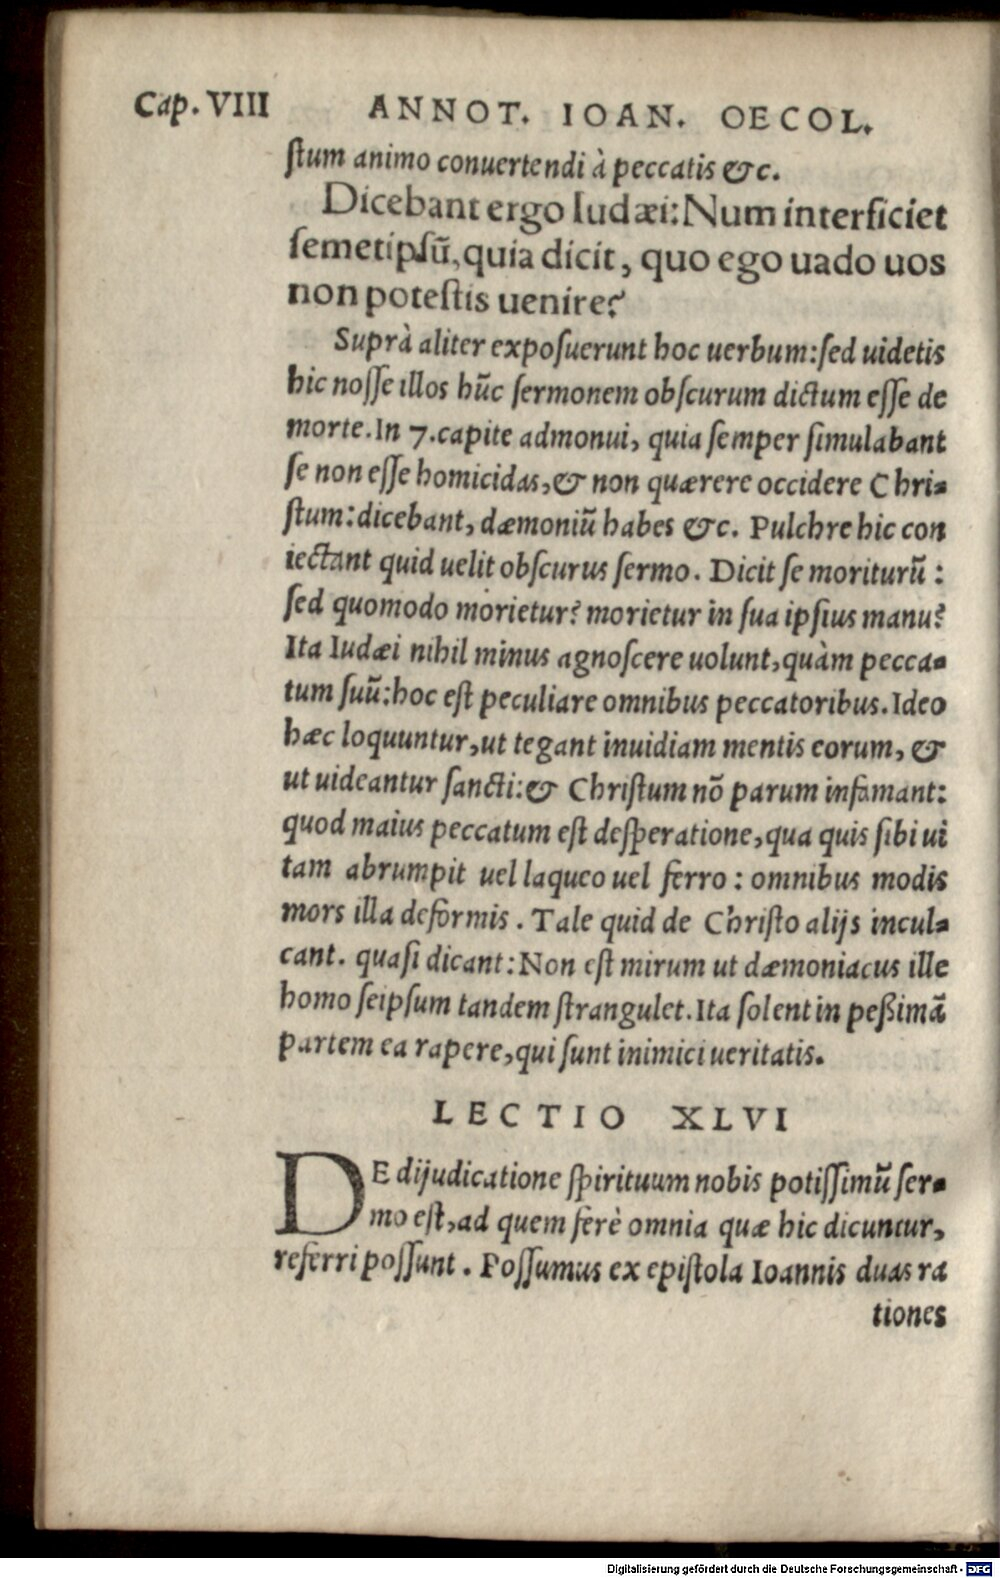 Cap. VIII ANNOT. IOAN. OECOL.
ſtum animo conuertendi à peccatis &c.
Dicebant ergo Iudæi: Num interficiet
ſemetipſũ, quia dicit, quo ego uado uos
non poteſtis uenire?
Suprà aliter expoſuerunt hoc uerbum: ſed uidetis
hic noſſe illos hũc ſermonem obſcurum dictum eſſe de
morte. In 7. capite admonui, quia ſemper ſimulabant
ſe non eſſe homicidas, & non quærere occidere Chri-
ſtum: dicebant, dæmoniũ habes &c. Pulchre hic con
iectant quid uelit obſcurus ſermo. Dicit ſe moriturũ :
ſed quomodo morietur? morietur in ſua ipſius manu?
Ita Iudæi nihil minus agnoſcere uolunt, quàm pecca-
tum ſuũ: hoc eſt peculiare omnibus peccatoribus. Ideo
hæc loquuntur, ut tegant inuidiam mentis eorum, &
ut uideantur ſancti: & Chriſtum nõ parum infamant:
quod maius peccatum eſt deſperatione, qua quis ſibi ui
tam abrumpit uel laqueo uel ferro : omnibus modis
mors illa deformis . Tale quid de Chriſto alijs incul-
cant. quaſi dicant: Non eſt mirum ut dæmoniacus ille
homo ſeipſum tandem ſtrangulet. Ita ſolent in peßimã
partem ea rapere, qui ſunt inimici ueritatis.
LECTIO XLVI
DE dijudicatione ſpirituum nobis potiſſimũ ſer-
mo eſt, ad quem ferè omnia quæ hic dicuntur,
referri poſſunt . Poſſumus ex epiſtola Ioannis duas ra
tiones
Digitalisierung gefördert durch die Deutsche Forschungsgemeinschaft - DFG